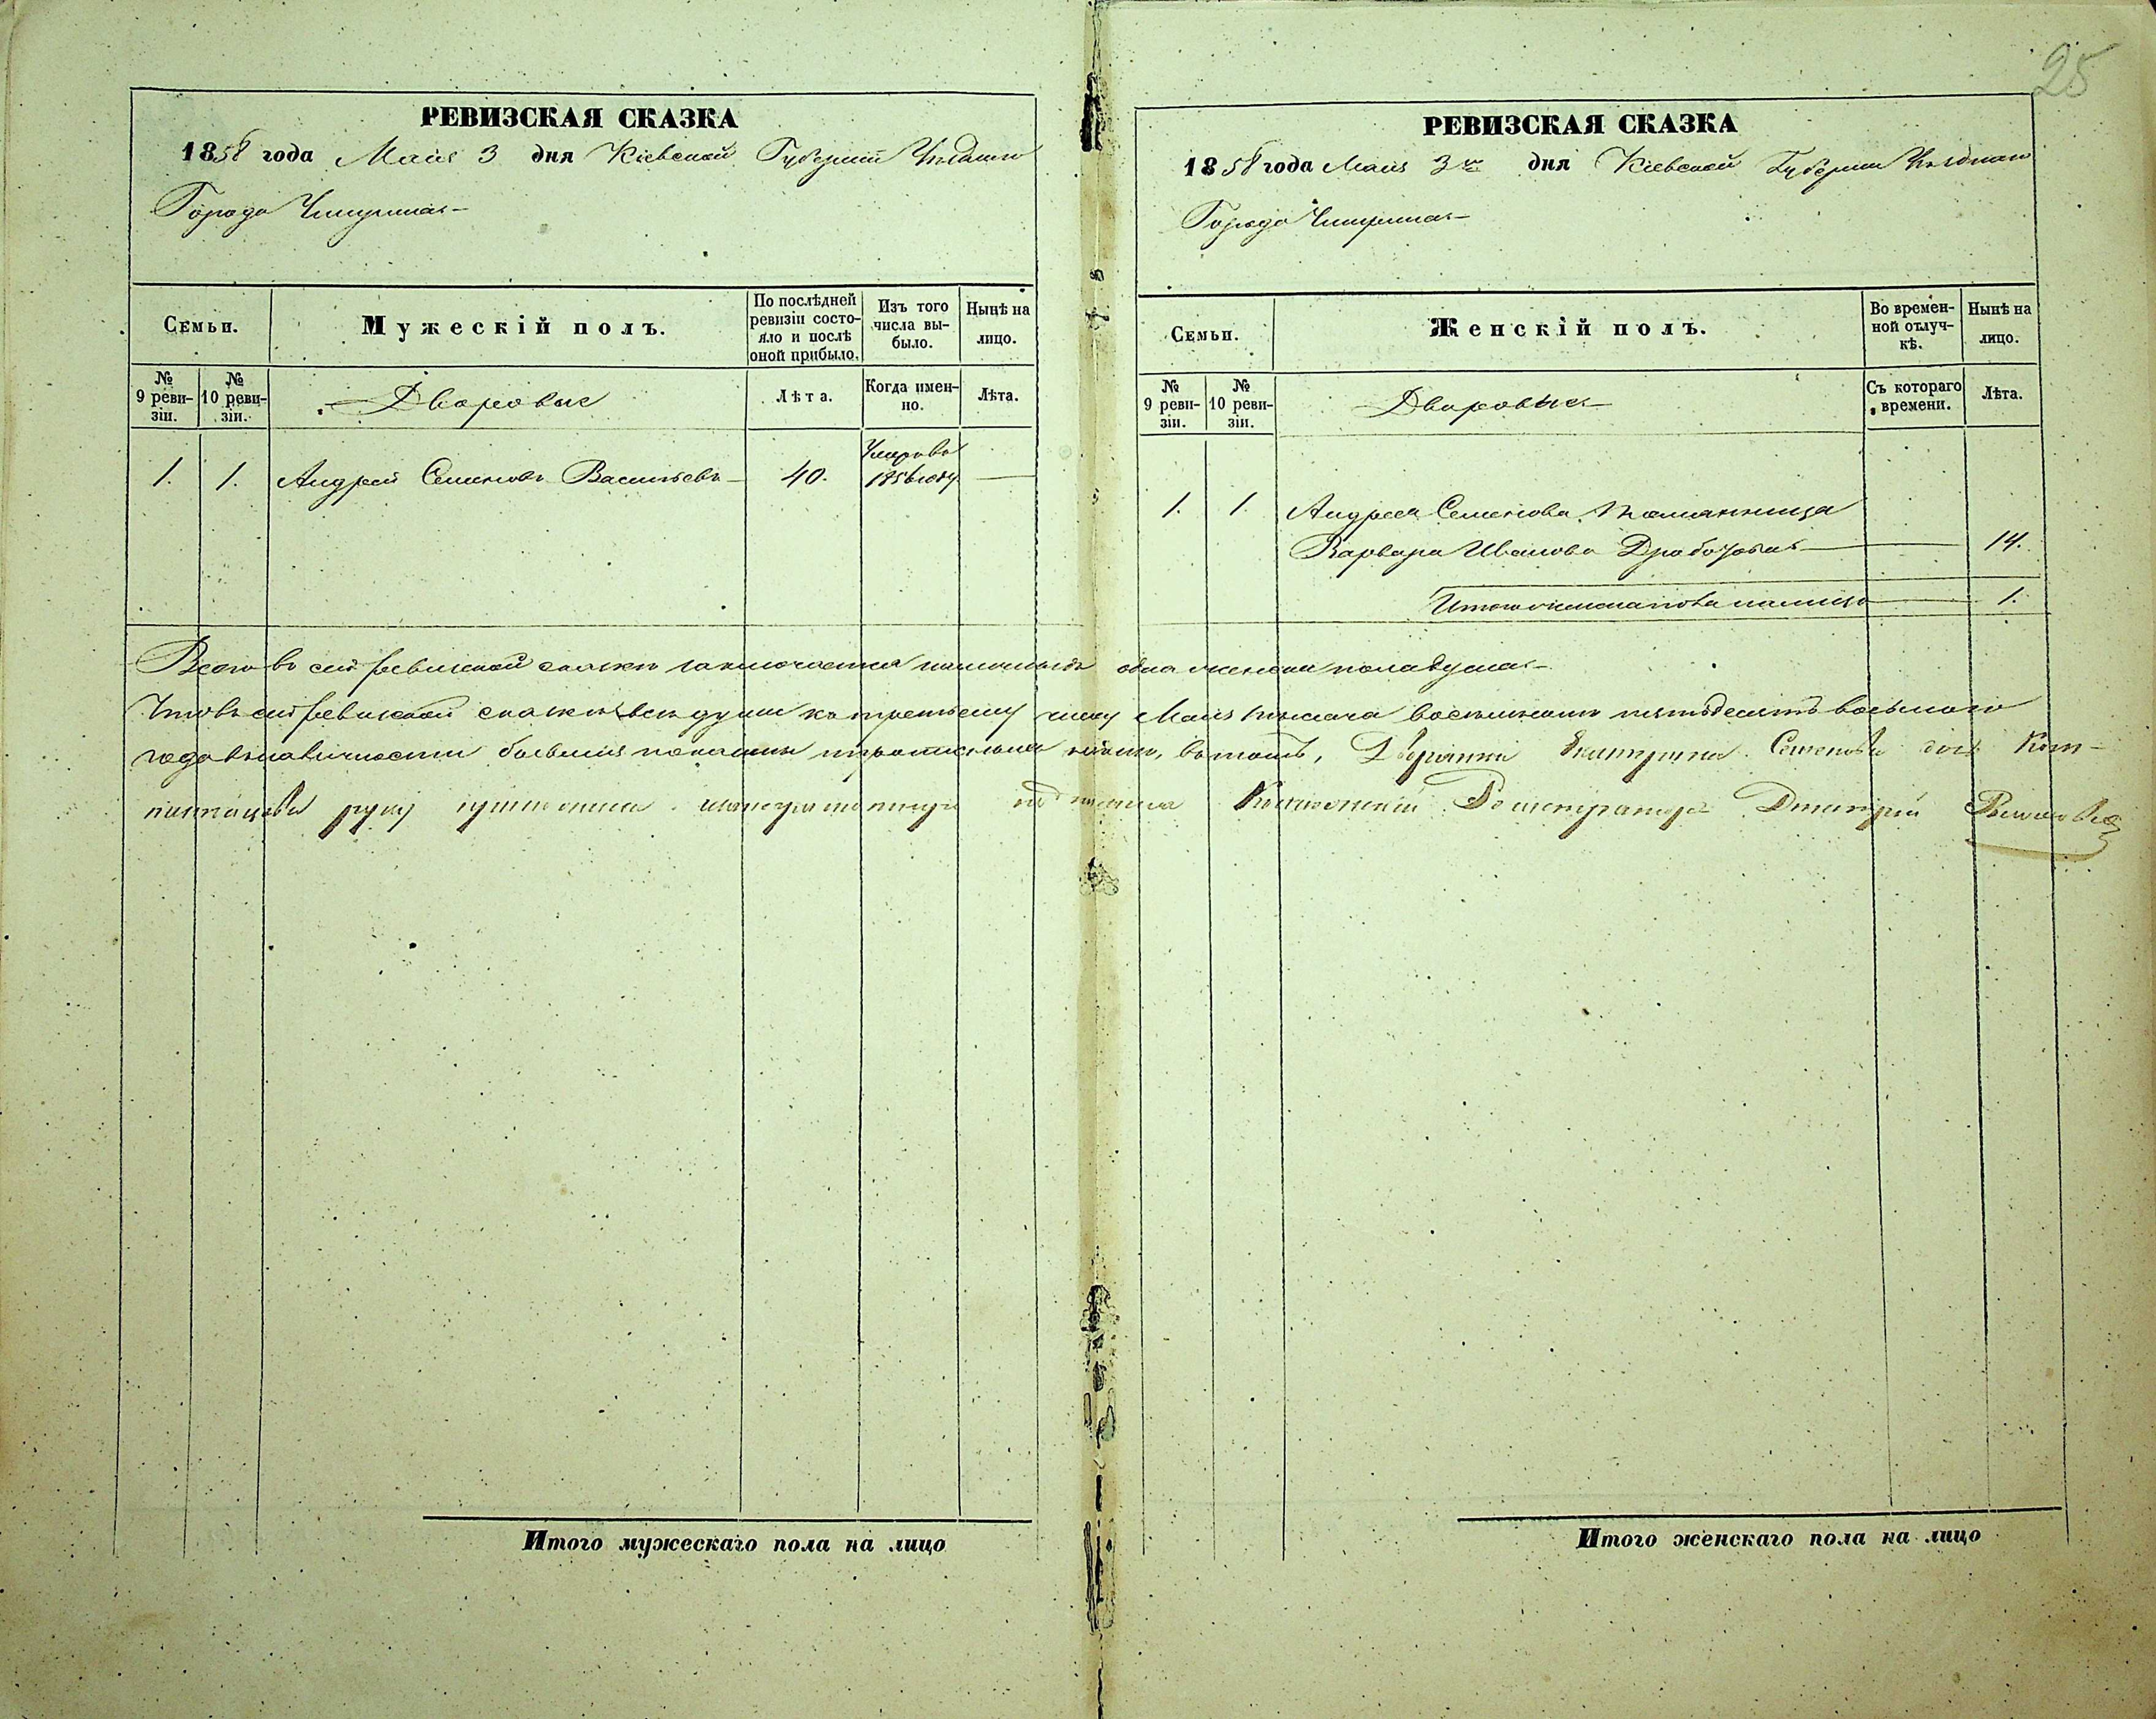 25
РЕВИЗСКАЯ СКАЗКА
1858 года Маія 3 дня Кіевской Губерніи Уѣзднаго
Города Чигирина
Семьи.
Мужескій полъ.
По послѣдней ревизіи состояло и послѣ оной прибыло.
Изъ того числа выбыло.
Нынѣ на лицо.
№ 9 ревизіи.
№ 10 ревизіи.
Дворовые
Лѣта.
Когда именно.
Лѣта.
1. 1. Андрей Семеновъ Васильевъ 40. Умеръ въ 1856 году
РЕВИЗСКАЯ СКАЗКА
1858 года Маія 3го дня Кіевской Губерніи Уѣзднаго
Города Чигирина
Семьи.
Женскій полъ.
Во временной отлучкѣ.
Нынѣ на лицо.
№ 9 ревизіи.
№ 10 ревизіи.
Дворовые
Съ котораго времени.
Лѣта.
1. 1. Андрея Семенова
Варвара Иванова 14.
Итого женска пола налицо 1.
Всего въ сей ревизской сказкѣ заключается наличныхъ одна женска пола душа
Что въ сей ревизской сказкѣ всѣ души къ третьему числу Маія тысяча восемьсотъ пятьдесятъ восьмого
года въ наличности бывшія показаны въ томъ, Дворянки Екатерины Семеновой дочь
руку Коллежскій Регистраторъ Дмитрій
Итого мужескаго пола на лицо
Итого женскаго пола на лицо